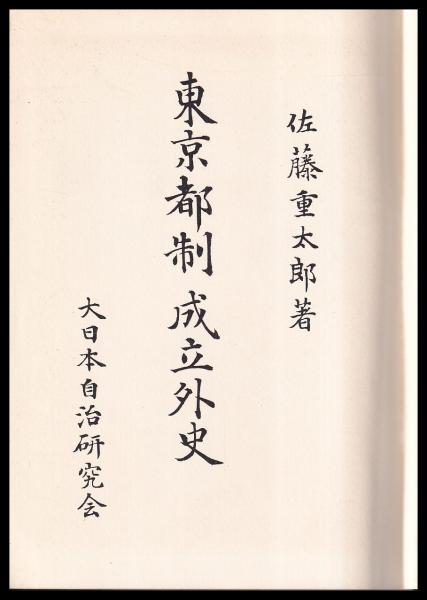 佐藤重太郎著
東京都制成立外史
大日本自治研究会